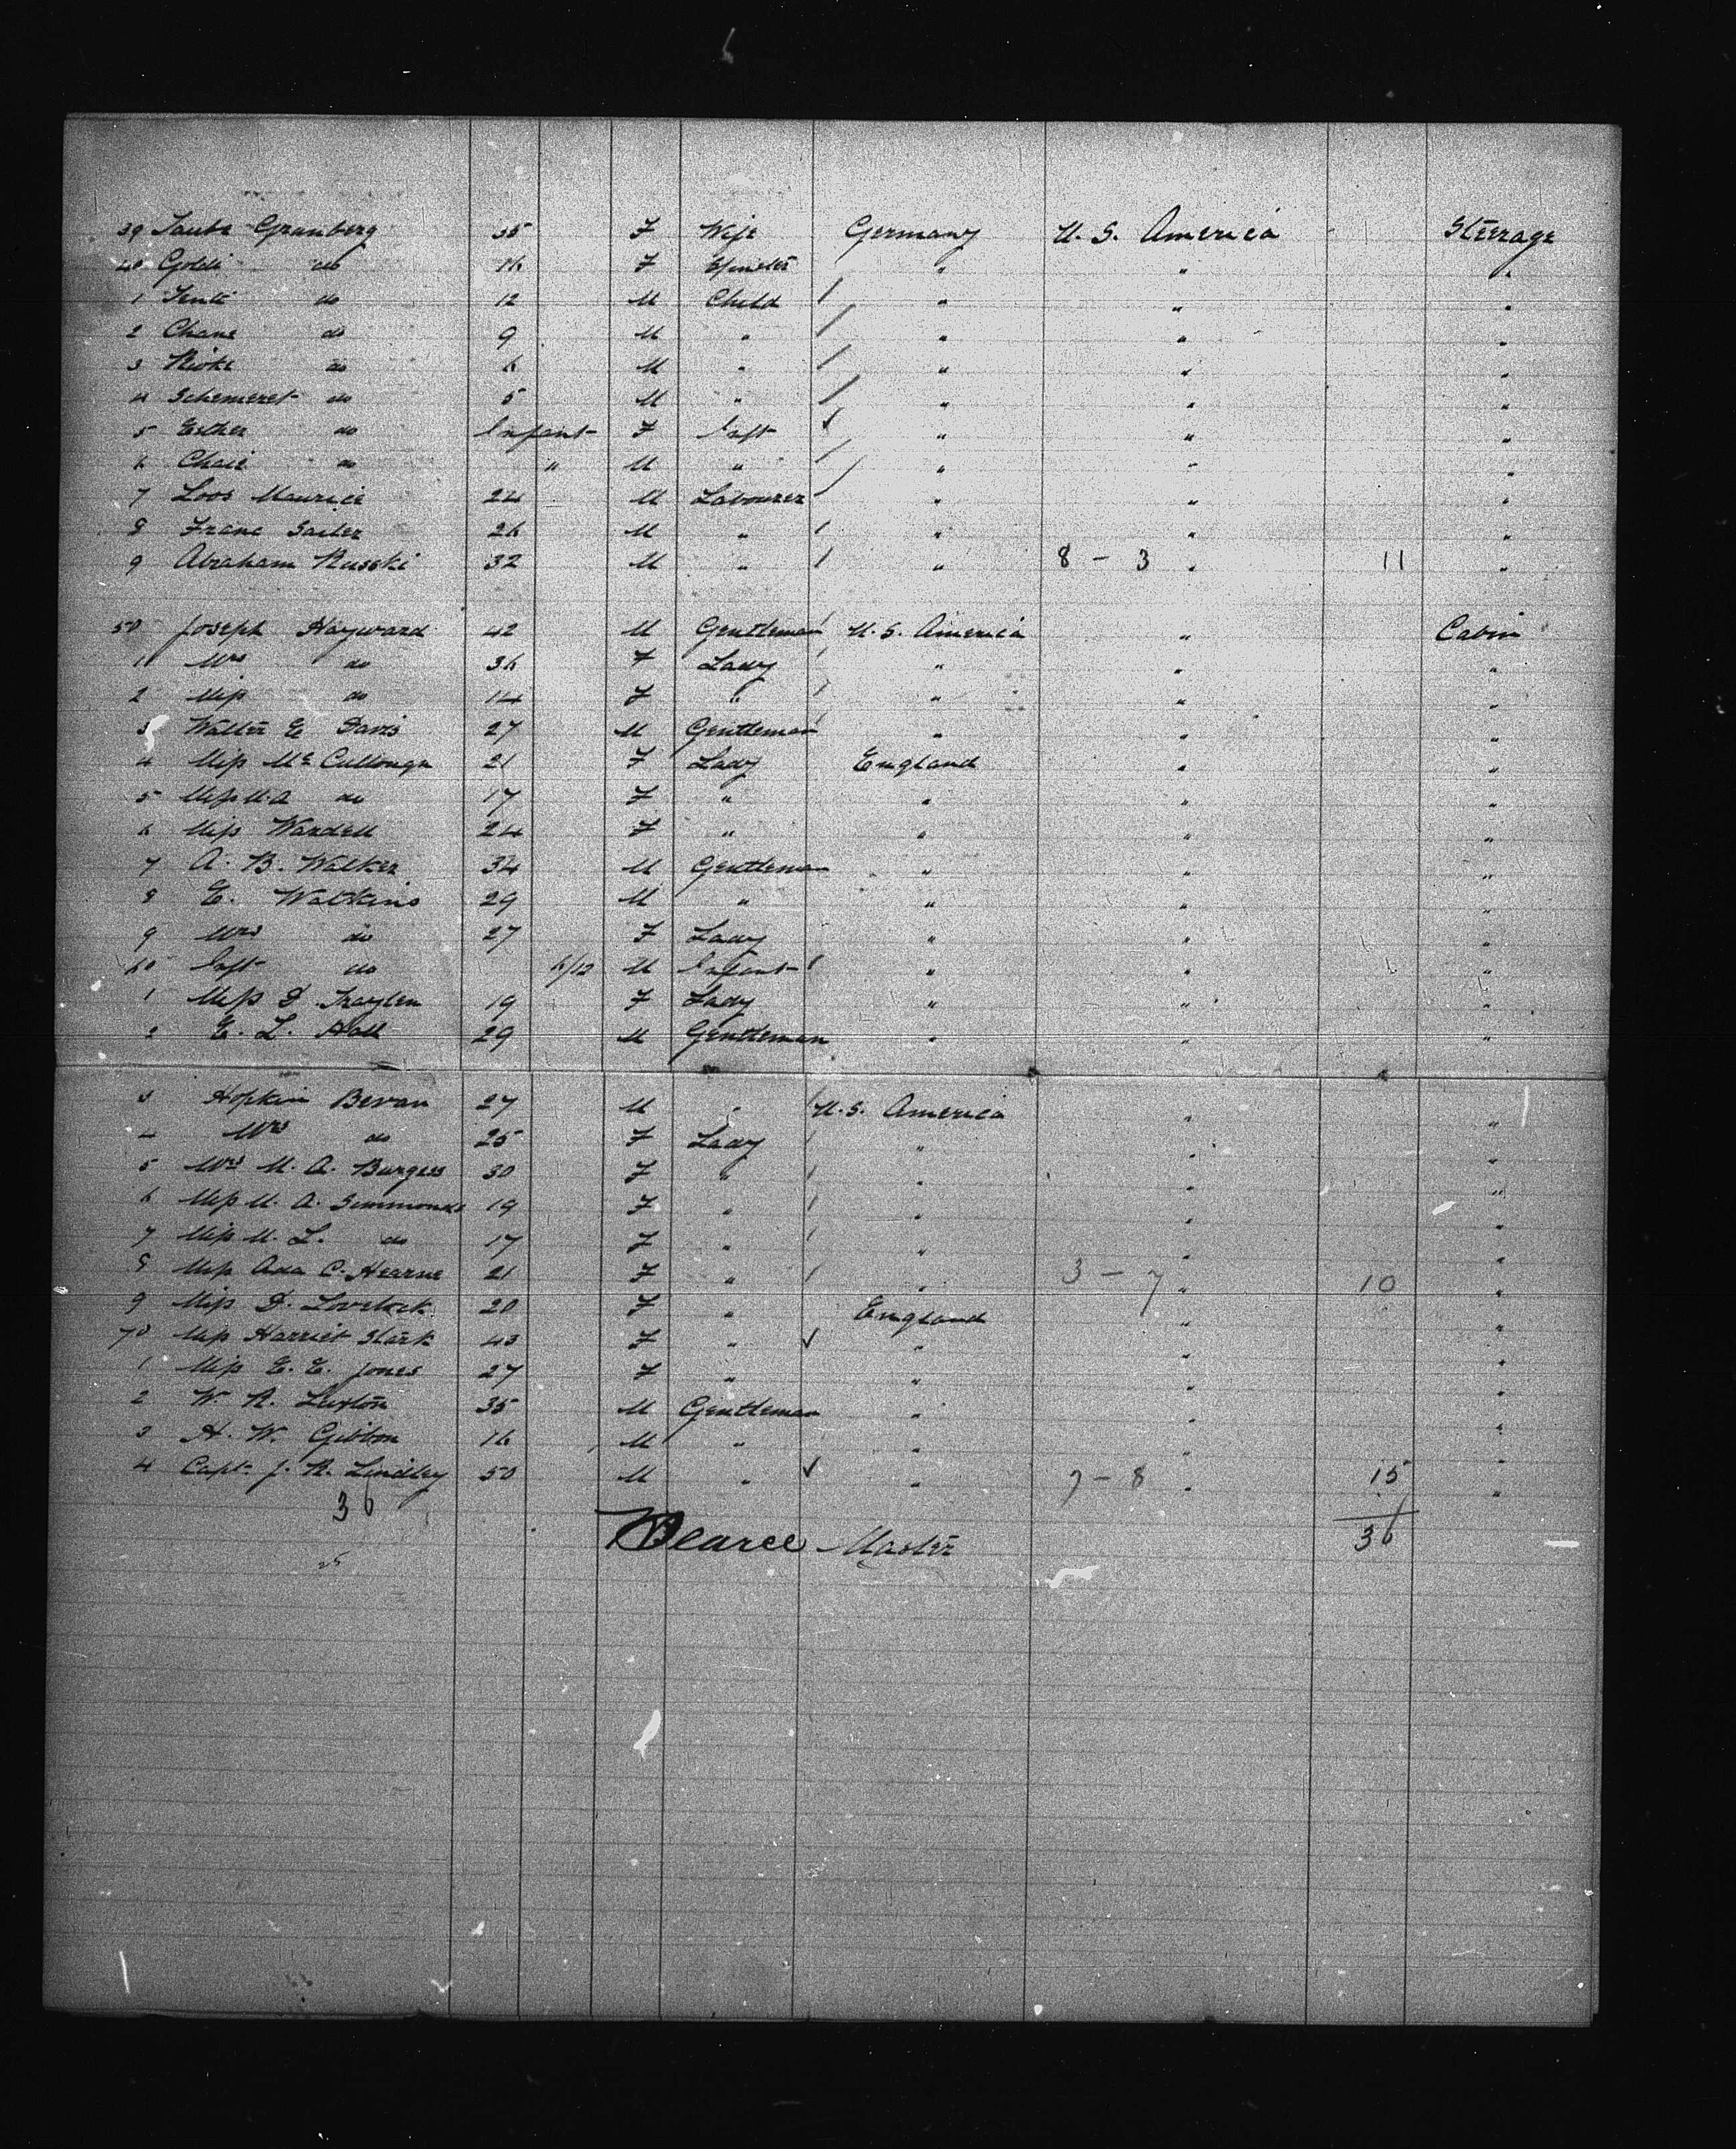 39 Taube Grunberg 35 F Wife Germany U. S. America Steerage
40 Goldi do 16 F Spinster " " "
1 do 12 M Child / " " "
2 Chane do 9 M " / " " "
3 do 6 M " / " " "
4 Schemeret do 5 M " / " " "
5 Esther do Infant F Inft / " " "
6 Chaie do " M " / " " "
7 Loos Maurice 24 M Labourer / " " "
8 Franc Sailer 26 M " / " " "
9 Abraham Russki 32 M " / " 8 - 3 " 11 "
50 Joseph Hayward 42 M Gentleman / U. S. America " Cabin
1 Mrs do 36 F Lady / " " "
2 Miss do 14 F " / " " "
3 Walter E Davis 27 M Gentleman / " " "
4 Miss McCullough 21 F Lady England " "
5 Miss M. A do 17 F " " " "
6 Miss Wardell 24 F " " " "
7 A. B. Walker 34 M Gentleman " " "
8 E. Watkins 29 M " " " "
9 Mrs do 27 F Lady " " "
60 Inft do 6/12 M Infant / " " "
1 Miss D. Traylen 19 F Lady " " "
2 E. L. Hall 29 M Gentleman " " "
3 Hopkin Bevan 27 M " / U. S. America " "
4 Mrs do 25 F Lady / " " "
5 Mrs M. A. Burgess 30 F " / " " "
6 Miss M. A. Simmonds 19 F " / " " "
7 Miss M. L. do 17 F " / " " "
8 Miss Ada C. Hearne 21 F " / " 3 - 7 " 10 "
9 Miss D. Lovelock 20 F " England " "
70 Miss Harriet Stark 43 F " ✓ " " "
1 Miss E. E. Jones 27 F " " " "
2 W. R. Luxton 35 M Gentleman " " "
3 H. W. Gibbon 16 M " " " "
4 Capt. J. R. Lindley 50 M " ✓ " 7 - 8 " 15 "
36
Pearce Master 36